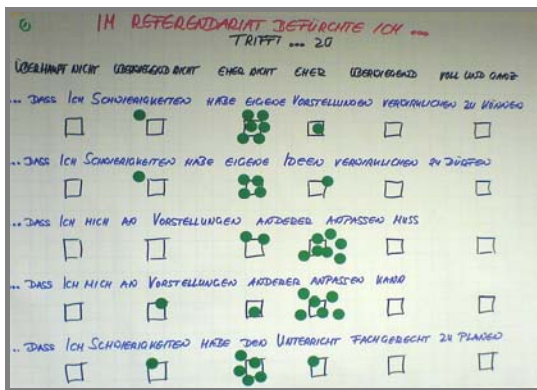 6 IM REFERENDARIAT BEFÜRCHTE ICH ...
TRIFFT ... ZU
ÜBERHAUPT NICHT ÜBERWIEGEND NICHT EHER NICHT EHER ÜBERWIEGEND VOLL UND GANZ
... DASS ICH SCHWIERIGKEITEN HABE EIGENE VORSTELLUNGEN VERWIRKLICHEN ZU KÖNNEN
... DASS ICH SCHWIERIGKEITEN HABE EIGENE IDEEN VERWIRKLICHEN ZU DÜRFEN
... DASS ICH MICH AN VORSTELLUNGEN ANDERER ANPASSEN MUSS
... DASS ICH MICH AN VORSTELLUNGEN ANDERER ANPASSEN KANN
... DASS ICH SCHWIERIGKEITEN HABE DEN UNTERRICHT FACHGERECHT ZU PLANEN